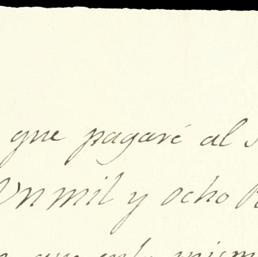 que pagaré al
Un mil y ocho
que